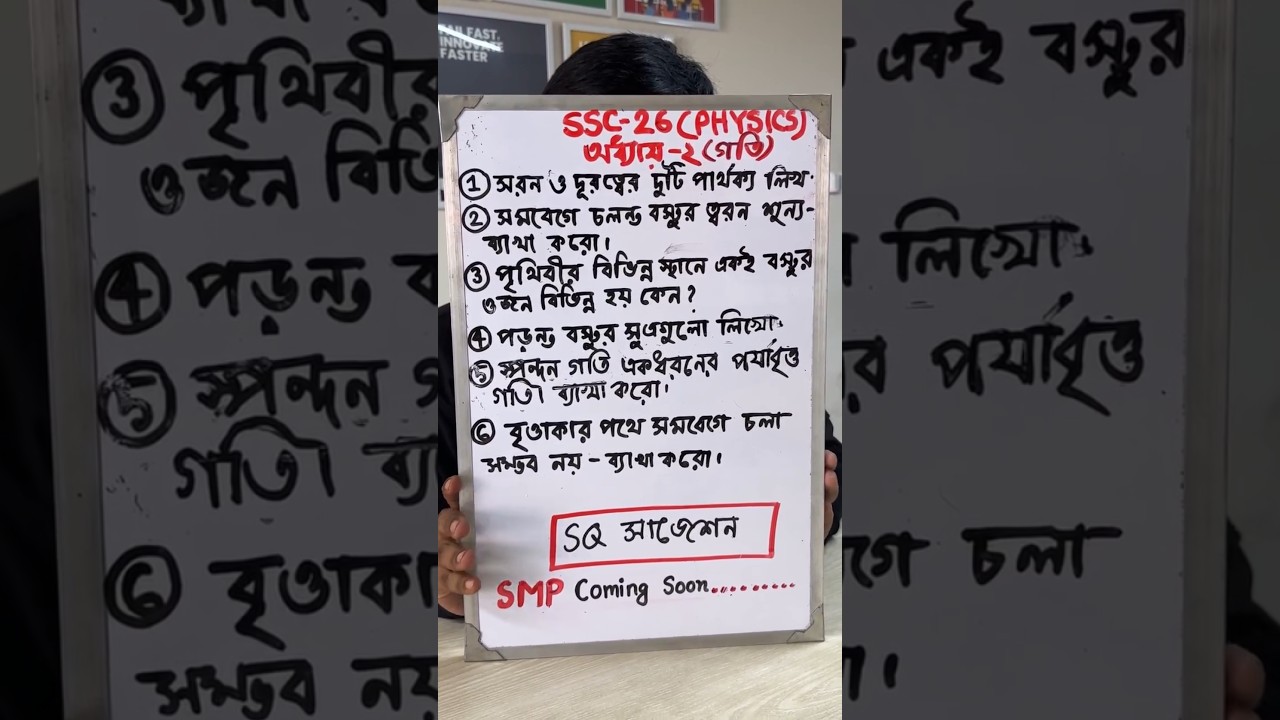 FAIL FAST,
INNOVATE
FASTER
SSC-26 (PHYSICS)
অধ্যায়-২ (গতি)
① সরন ও দূরত্বের দুটি পার্থক্য লিখ.
② সমবেগে চলন্ত বস্তুর ত্বরন শূন্য-
ব্যাখা করো।
③ পৃথিবীর বিভিন্ন স্থানে একই বস্তুর
ওজন বিভিন্ন হয় কেন?
④ পড়ন্ত বস্তুর সুত্রগুলো লিখো.
⑤ স্পন্দন গতি একধরনের পর্যাবৃত্ত
গতি। ব্যাখ্যা করো।
⑥ বৃত্তাকার পথে সমবেগে চলা
সম্ভব নয় - ব্যাখা করো।
SQ সাজেশন
SMP Coming Soon.........